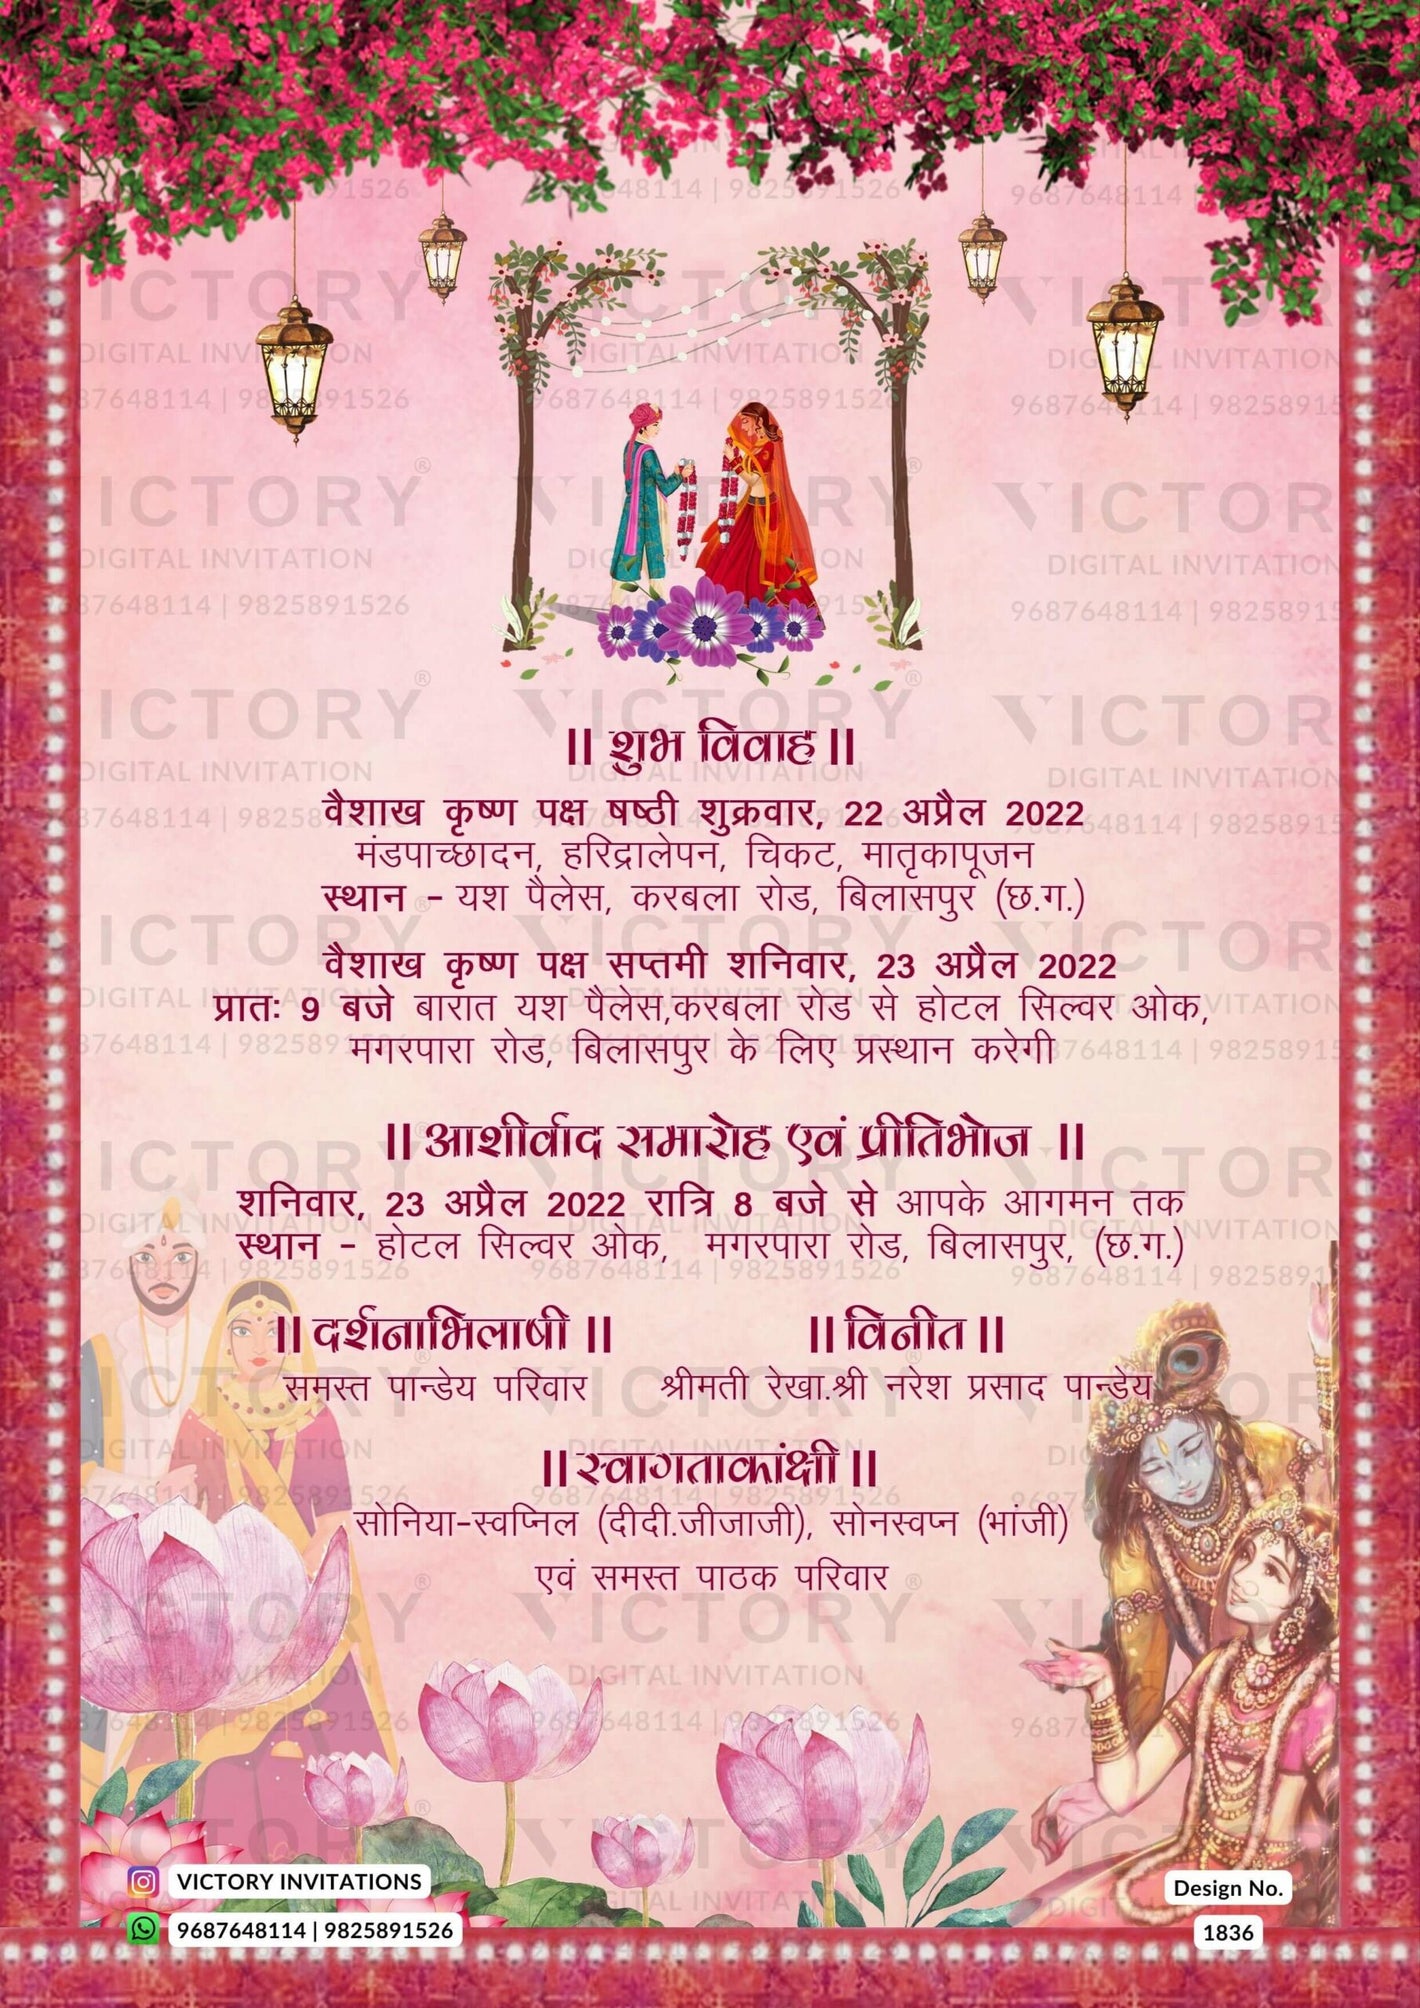 || शुभ विवाह ||
वैशाख कृष्ण पक्ष षष्ठी शुक्रवार, 22 अप्रैल 2022
मंडपाच्छादन, हरिद्रालेपन, चिकट, मातृकापूजन
स्थान - यश पैलेस, करबला रोड, बिलासपुर (छ.ग.)
वैशाख कृष्ण पक्ष सप्तमी शनिवार, 23 अप्रैल 2022
प्रातः 9 बजे बारात यश पैलेस,करबला रोड से होटल सिल्वर ओक,
मगरपारा रोड, बिलासपुर के लिए प्रस्थान करेगी
|| आशीर्वाद समारोह एवं प्रीतिभोज ||
शनिवार, 23 अप्रैल 2022 रात्रि 8 बजे से आपके आगमन तक
स्थान - होटल सिल्वर ओक, मगरपारा रोड, बिलासपुर, (छ.ग.)
|| दर्शनाभिलाषी ||
समस्त पान्डेय परिवार
|| विनीत ||
श्रीमती रेखा.श्री नरेश प्रसाद पान्डेय
|| स्वागताकांक्षी ||
सोनिया-स्वप्निल (दीदी.जीजाजी), सोनस्वप्न (भांजी)
एवं समस्त पाठक परिवार
VICTORY INVITATIONS
9687648114 | 9825891526
Design No.
1836
VICTORY®
DIGITAL INVITATION
9687648114 | 9825891526